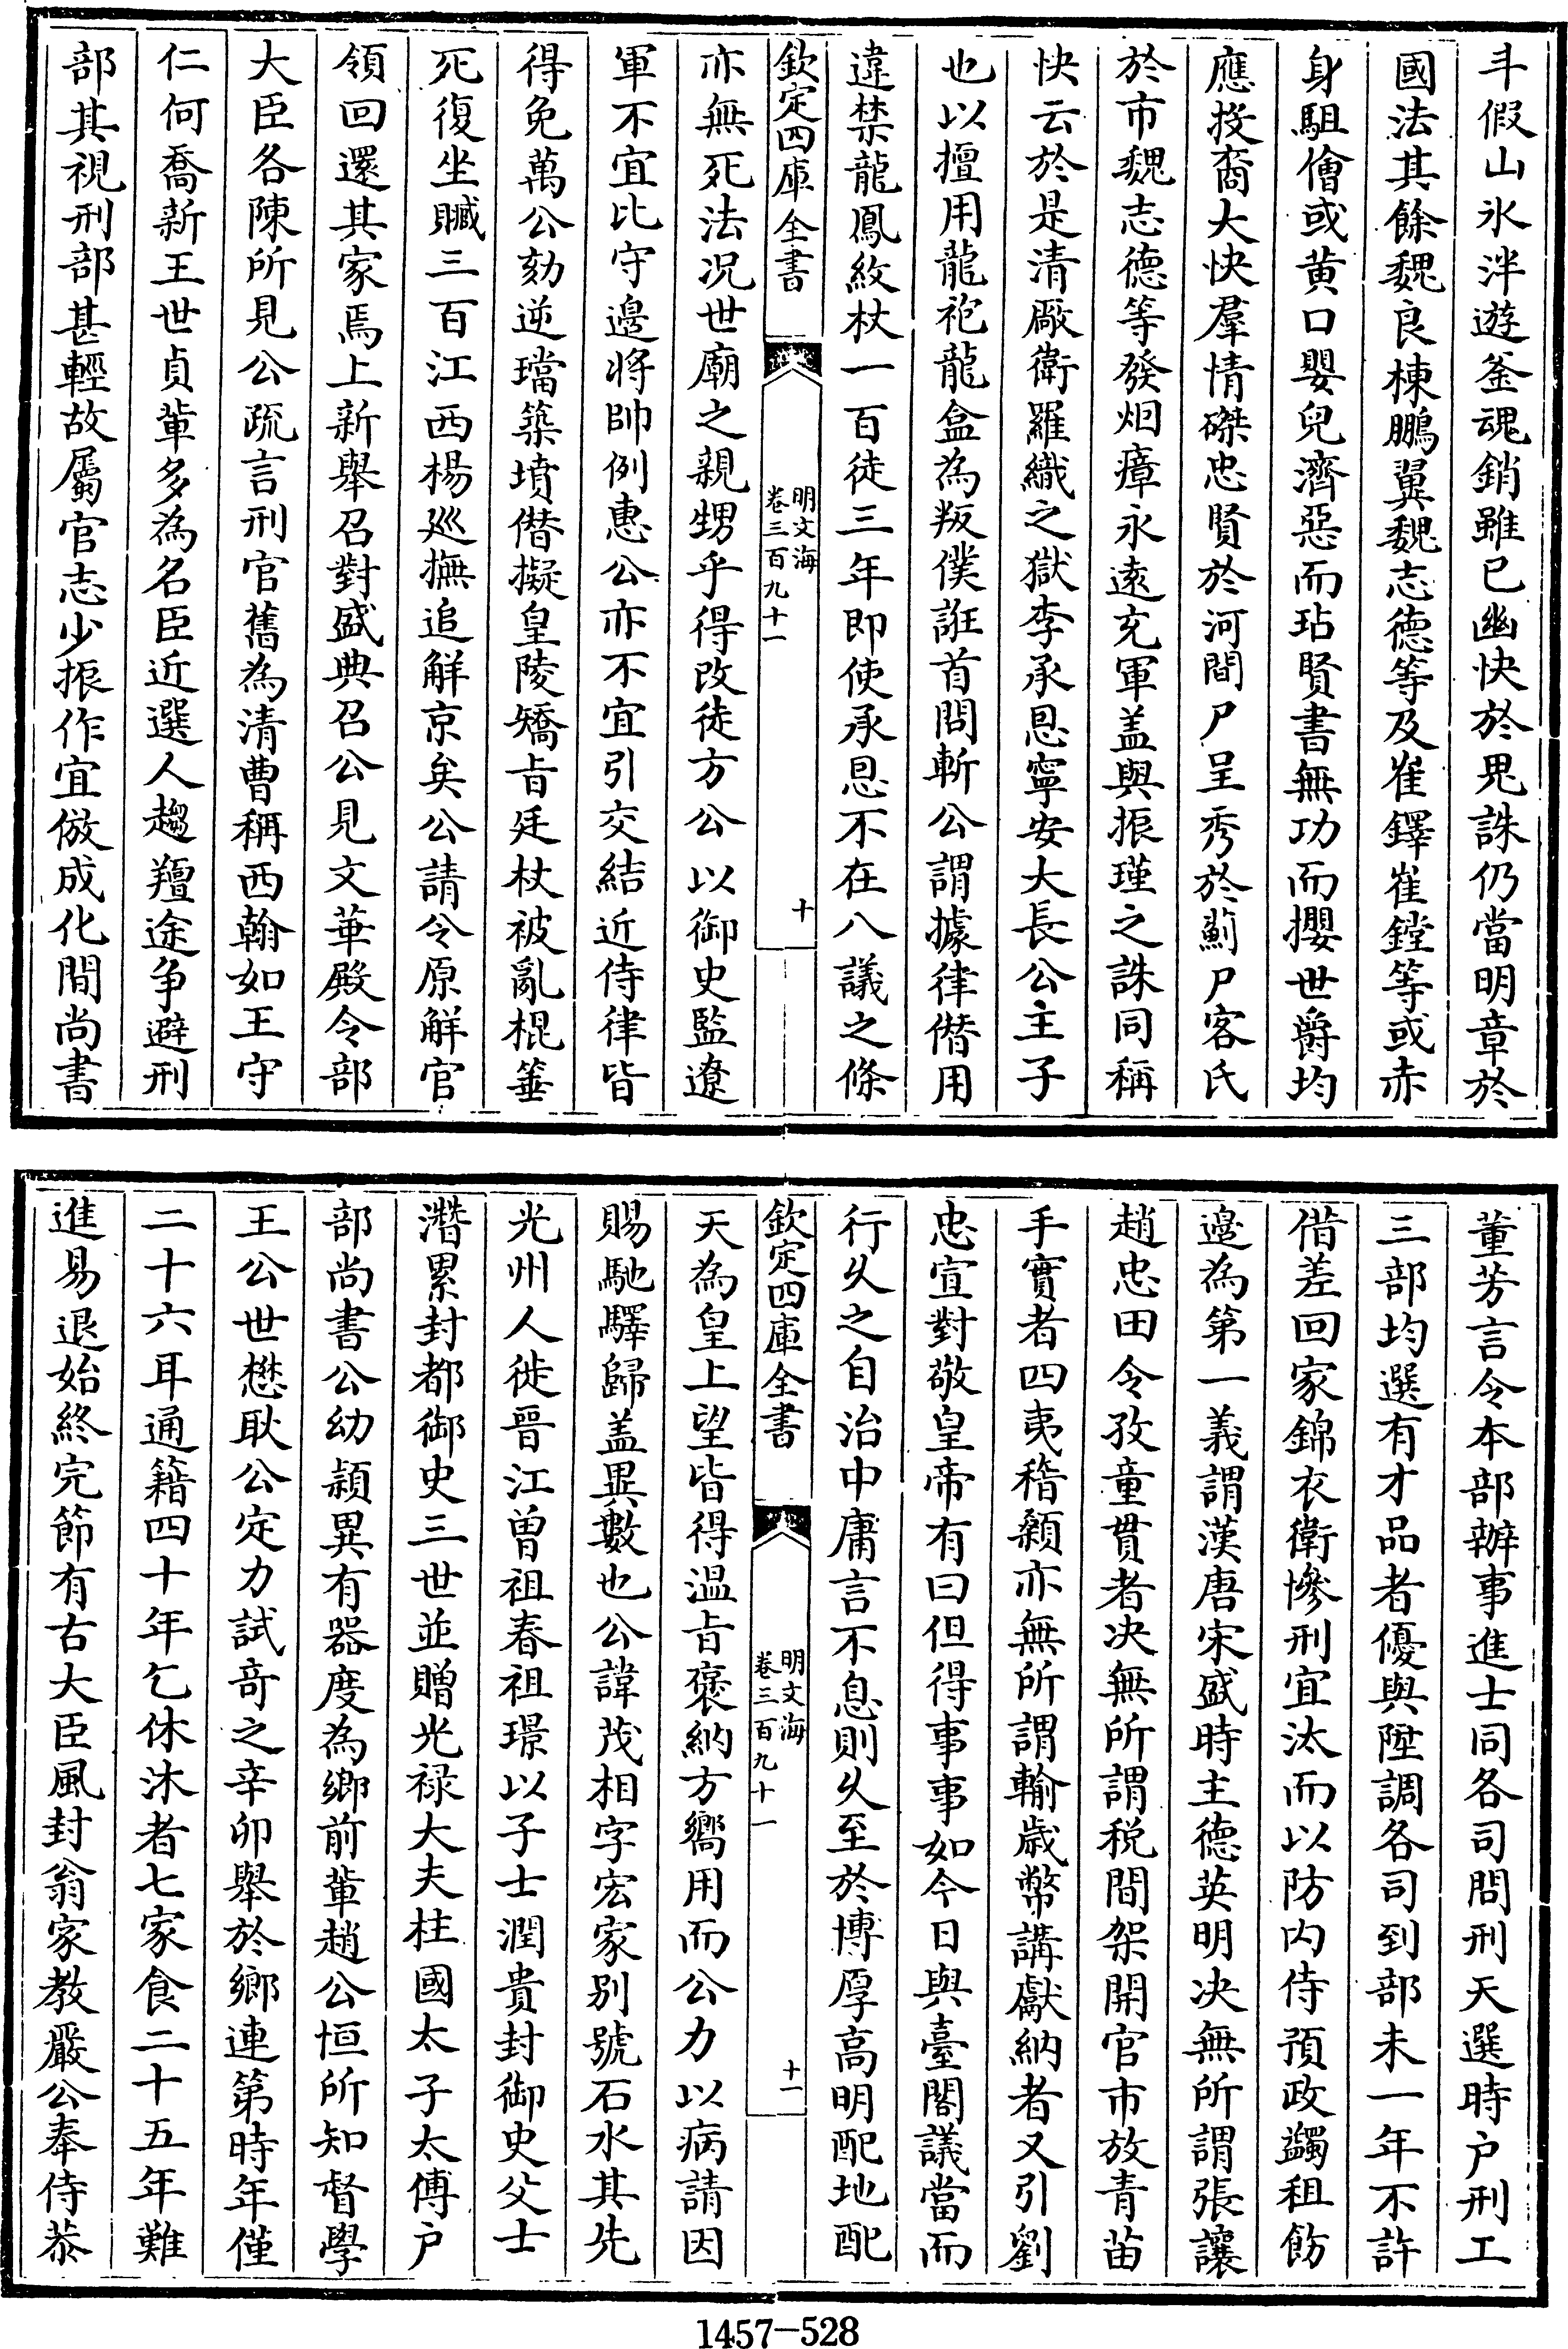 斗假山氷泮遊釜魂銷雖已幽快於鬼誅仍當明章於
國法其餘魏良棟鵬翼魏志德等及崔鐸崔鏜等或赤
身駔儈或黄口嬰兒濟惡而玷賢書無功而攖世爵均
應投裔大快羣情磔忠賢於河間尸呈秀於薊尸客氏
於市魏志德等發烟瘴永逺充軍盖與振瑾之誅同稱
快云於是清厰衛羅織之獄李承恩寧安大長公主子
也以擅用龍袍龍盒為叛僕誑首問斬公謂據律僭用
違禁龍鳳紋杖一百徒三年即使承恩不在八議之條
欽定四庫全書
明文海
卷三百九十一
十
亦無死法况世廟之親甥乎得改徒方公以御史監遼
軍不宜比守邉将帥例惠公亦不宜引交結近侍律皆
得免萬公劾逆璫築墳僭擬皇陵矯㫖廷杖被亂棍箠
死復坐贓三百江西楊廵撫追解京矣公請令原解官
領回還其家焉上新舉召對盛典召公見文華殿令部
大臣各陳所見公疏言刑官舊為清曹稱西翰如王守
仁何喬新王世貞軰多為名臣近選人趨羶途争避刑
部其視刑部甚輕故屬官志少振作宜倣成化間尚書
董芳言令本部辦事進士同各司問刑天選時户刑工
三部均選有才品者優與陞調各司到部未一年不許
借差回家錦衣衛慘刑宜汰而以防内侍預政蠲租飭
邉為第一義謂漢唐宋盛時主德英明决無所謂張讓
趙忠田令孜童貫者决無所謂税間架開官市放青苗
手實者四夷稽顙亦無所謂輸歳幣講獻納者又引劉
忠宣對敬皇帝有曰但得事事如今日與臺閣議當而
行乆之自治中庸言不息則乆至於博厚高明配地配
欽定四庫全書
明文海
卷三百九十一
十一
天為皇上望皆得温㫖褒納方嚮用而公力以病請因
賜馳驛歸盖異數也公諱茂相字宏家别號石水其先
光州人徙晉江曽祖春祖璟以子士潤貴封御史父士
濳累封都御史三世並贈光禄大夫柱國太子太傅户
部尚書公幼頴異有器度為鄉前軰趙公恒所知督學
王公世懋耿公定力試竒之辛卯舉於鄉連第時年僅
二十六耳通籍四十年乞休沐者七家食二十五年難
進易退始終完節有古大臣風封翁家教嚴公奉侍恭
1457-528